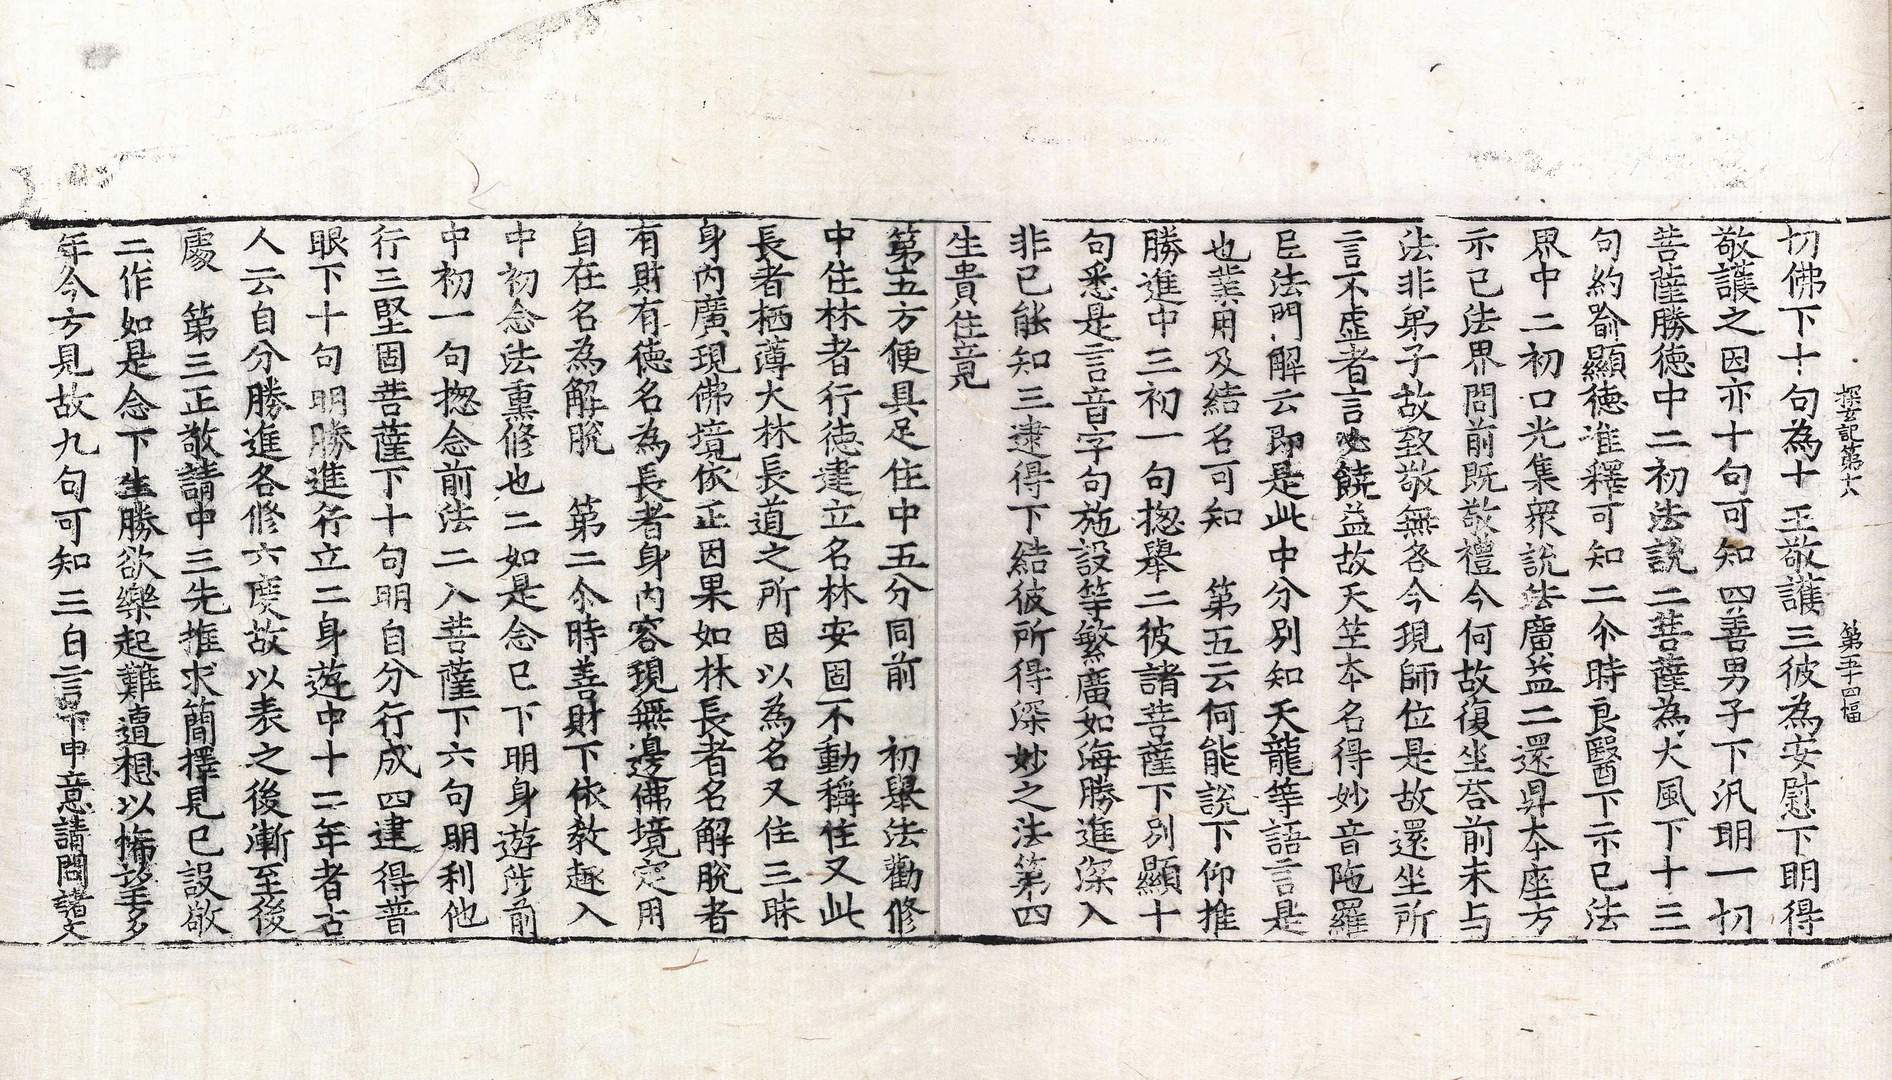 探玄記第十八　第五十四幅
切佛下十句為十王敬護三彼為安慰下明得
敬護之因亦十句可知四善男子下汎明一切
菩薩勝德中二初法說二菩薩為大風下十三
句約喻顯德准釋可知二尒時良醫下示已法
界中二初口光集衆說法廣益二還昇本座方
示已法界問前既敬禮今何故復坐荅前未与
法非弟子故致敬無咎今現師位是故還坐所
言不虛者言必饒益故天笁本名得妙音陁羅
𡰱法門解云即是此中分別知天龍等語言是
也業用及結名可知　第五云何能說下仰推
勝進中三初一句揔舉二彼諸菩薩下別顯十
句悉是言音字句施設等繁廣如海勝進深入
非已能知三逮得下結彼所得深妙之法第四
生貴住竟
第五方便具足住中五分同前　初舉法勸修
中住林者行德建立名林安固不動稱住又此
長者栖薄大林長道之所因以為名又住三昧
身內廣現佛境依正因果如林長者名解脫者
有財有德名為長者身內容現無邊佛境定用
自在名為解脫　第二尒時善財下依教趣入
中初念法熏修也二如是念已下明身遊涉前
中初一句揔念前法二入菩薩下六句明利他
行三堅固菩薩下十句明自分行成四逮得普
眼下十句明勝進行立二身遊中十二年者古
人云自分勝進各修六度故以表之後漸至後
處　第三正敬請中三先推求簡擇見已設敬
二作如是念下生勝欲樂起難遭想以悕望多
年今方見故九句可知三白言下申意請問諸文